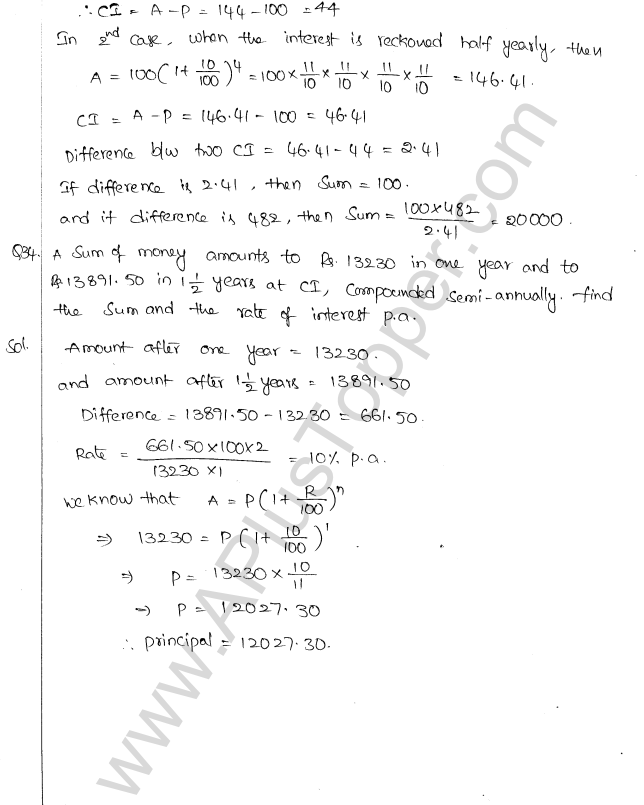 ∴ CI = A - P = 144 - 100 = 44
In 2nd case, when the interest is reckoned half yearly, then
A = 100(1+10/100)^4 = 100 × 11/10 × 11/10 × 11/10 × 11/10 = 146.41.
CI = A - P = 146.41 - 100 = 46.41
Difference b/w two CI = 46.41 - 44 = 2.41
If difference is 2.41, then Sum = 100.
and if difference is 482, then Sum = 100×482/2.41 = 20000.
Q34. A Sum of money amounts to Rs. 13230 in one year and to
Rs 13891.50 in 1 1/2 years at CI, compounded semi-annually. find
the Sum and the rate of interest p.a.
Sol. Amount after one year = 13230.
and amount after 1 1/2 years = 13891.50
Difference = 13891.50 - 13230 = 661.50.
Rate = 661.50×100×2/13230×1 = 10% p.a.
we know that A = P(1+R/100)^n
⇒ 13230 = P(1+10/100)^1
⇒ P = 13230 × 10/11
⇒ P = 12027.30
∴ principal = 12027.30.
www.APlusTopper.com